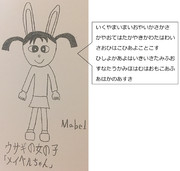 いくやまいまいおやいかさかさ
かやおてはたかやきかわたはわい
さおひはこひあよことこす
ひしよかあよはいきいきたみふお
すなたうかみははむはおもこあふ
あはかのあすき
Mabel
ウサギの女の子
「メイベルちゃん」